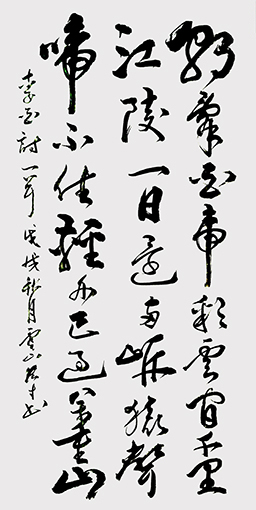 朝辭白帝彩雲間千里
江陵一日還兩岸猿聲
啼不住輕舟已過萬重山
李白詩一首戊戌秋月